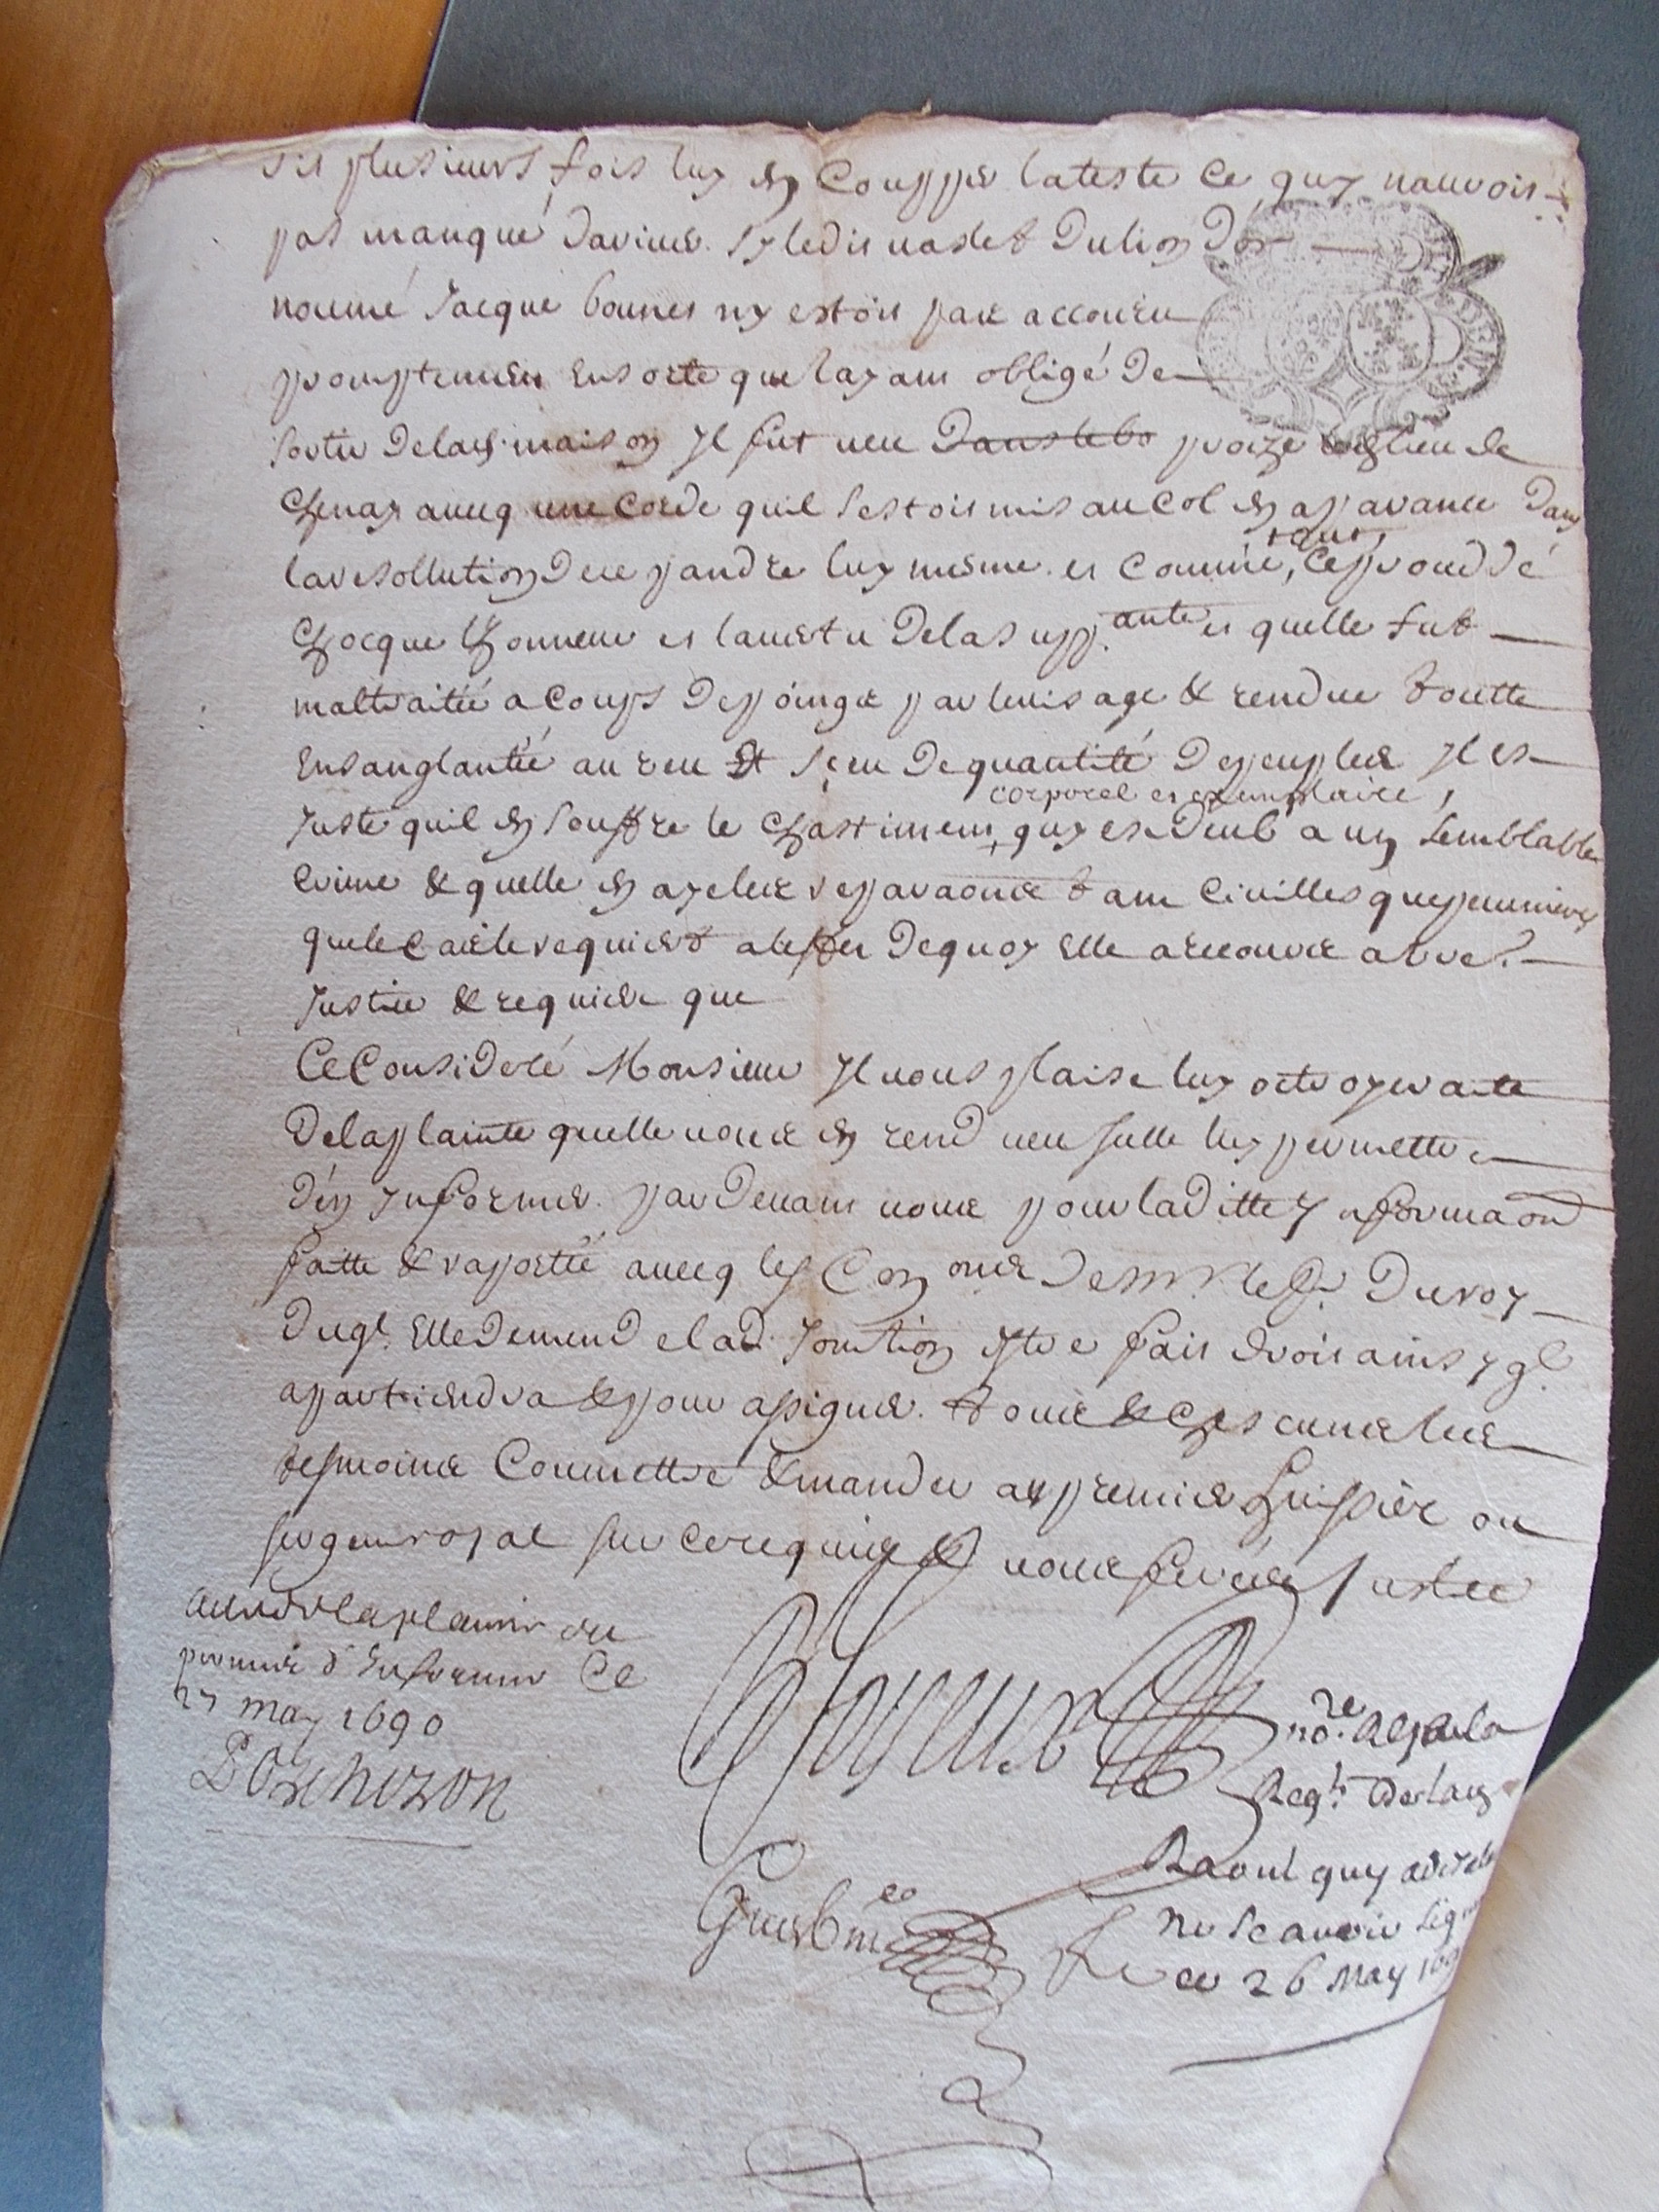 dit plusieurs fois luy en coupper lateste ce quy nauroit
pas manqué darivér. sy ledit vaslet du lion dor
nommé Jacque bonnet ny estoit pas accouru
promptement ensorte que layant obligé de
sortir delad. maison Jl fut veu dans le bo proze lieu de
chenay avecq une corde quil sestoit mis au col en apavance dans
la resollution de ce pandre luy mesme. et comme, tout, ce proceddé
chocque lhonneur et lavertu delasupp.ante et quelle fut
maltraitée a coups de poingz par levisage & rendue toutte
ensanglantée au veu et sceu de quantité de peuples Jl est
corporel et exemplaire,
Juste quil en souffre le chastiment, quy est deub a un semblable
crime & quelle en ayt les reparaons tant civilles que pecunieres
que le cas le requiert a leffet de quoy elle a recours a vre.
Justice & requiert que
Ce Consideré Monsieur Jl vous plaise luy octroyer acte
delaplainte quelle vous en rend veu Jcelle luy permettre
dén Jnformer. par devant vous pour laditte Jnformaon
faitte & raportée avecq les Con ons de Mr. le P. du roy
duql. elle demende lad. Jonction estre fait droit ainsy ql
apartiendra & pour assigner. tous & chescuns les
tesmoins Commettre & mander au premier huissier ou
sergent royal sur ce requis & vous ferés Justice
acte de la plainte &
permis d'Informer ce
27 may 1690
no.re a la
Reqte. de lad
Raoul quy a dit
ne scavoir sign
ce 26 may 169